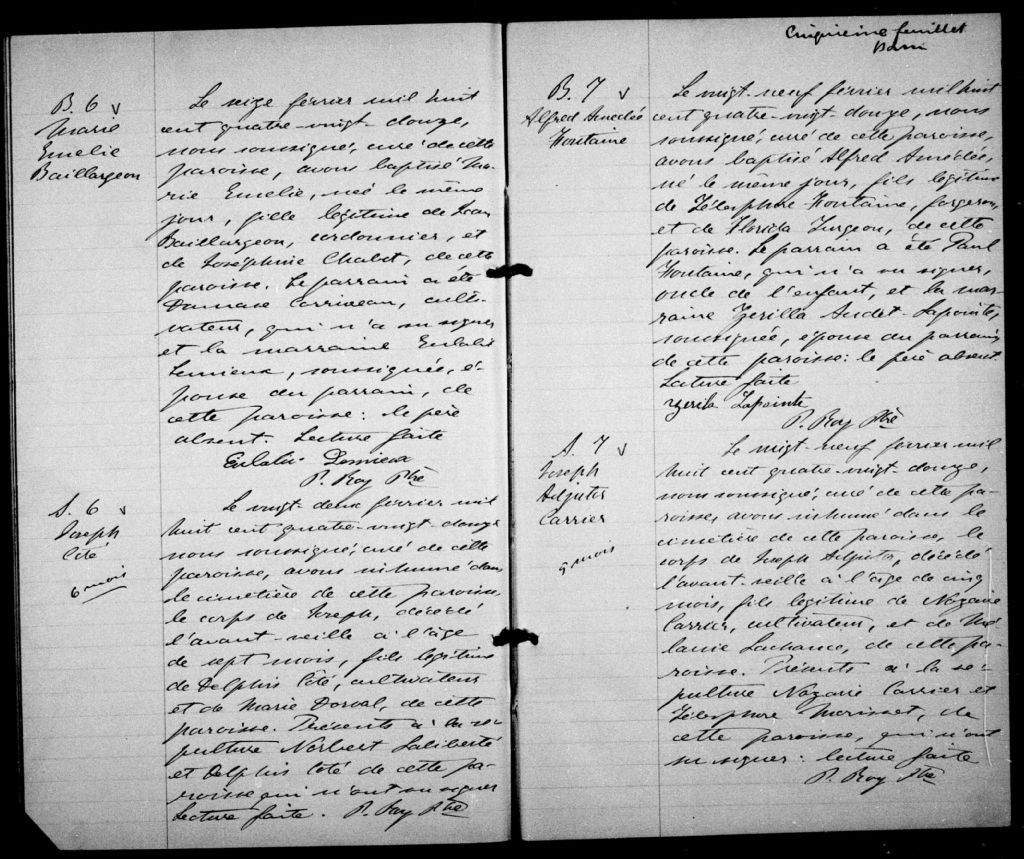 B. 6
Marie
Emelie
Baillargeon
Le seize février mil huit
cent quatre-vingt-douze,
nous soussigné, curé de cette
paroisse, avons baptisé Ma-
rie Emelie, née le même
jour, fille légitime de Jean
Baillargeon, cordonnier, et
de Joséphine Chabot, de cette
paroisse. Le parrain a été
Damase Carrineau, culti-
vateur, qui n'a su signer
et la marraine Eulalie
Lemieux, soussignée, é-
pouse du parrain, de
cette paroisse: le père
absent. Lecture faite
Eulalie Lemieux
P. Roy Ptre
S. 6
Joseph
Côté
6 mois
Le vingt-deux février mil
huit cent quatre-vingt-douze
nous soussigné, curé de cette
paroisse, avons inhumé dans
le cimetière de cette paroisse
le corps de Joseph, décédé
l'avant-veille à l'âge
de sept mois, fils légitime
de Delphis Côté, cultivateur
et de Marie Dorval, de cette
paroisse. Présents à la sé-
pulture Norbert Laliberté
et Delphis Côté de cette pa-
roisse qui n'ont su signer
Lecture faite. P. Roy Ptre
Cinquième feuillet
B. 7
Alfred Amédée
Fontaine
Le vingt-neuf février mil huit
cent quatre-vingt-douze, nous
soussigné, curé de cette paroisse,
avons baptisé Alfred Amédée,
né le même jour, fils légitime
de Télesphore Fontaine, forgeron,
et de Florida Turgeon, de cette
paroisse. Le parrain a été Paul
Fontaine, qui n'a su signer,
oncle de l'enfant, et la mar-
raine Zerilla Audet-Lapointe,
soussignée, épouse du parrain,
de cette paroisse: le père absent.
Lecture faite
Zerila Lapointe
P. Roy Ptre
S. 7
Joseph
Adjutor
Carrier
5 mois
Le vingt-neuf février mil
huit cent quatre-vingt-douze,
nous soussigné, curé de cette pa-
roisse, avons inhumé dans le
cimetière de cette paroisse, le
corps de Joseph Adjutor, décédé
l'avant-veille à l'âge de cinq
mois, fils légitime de Nazaire
Carrier, cultivateur, et de Mé-
lanie Lachance, de cette pa-
roisse. Présents à la sé-
pulture Nazaire Carrier et
Télesphore Morisset, de
cette paroisse, qui n'ont
su signer: lecture faite
P. Roy Ptre